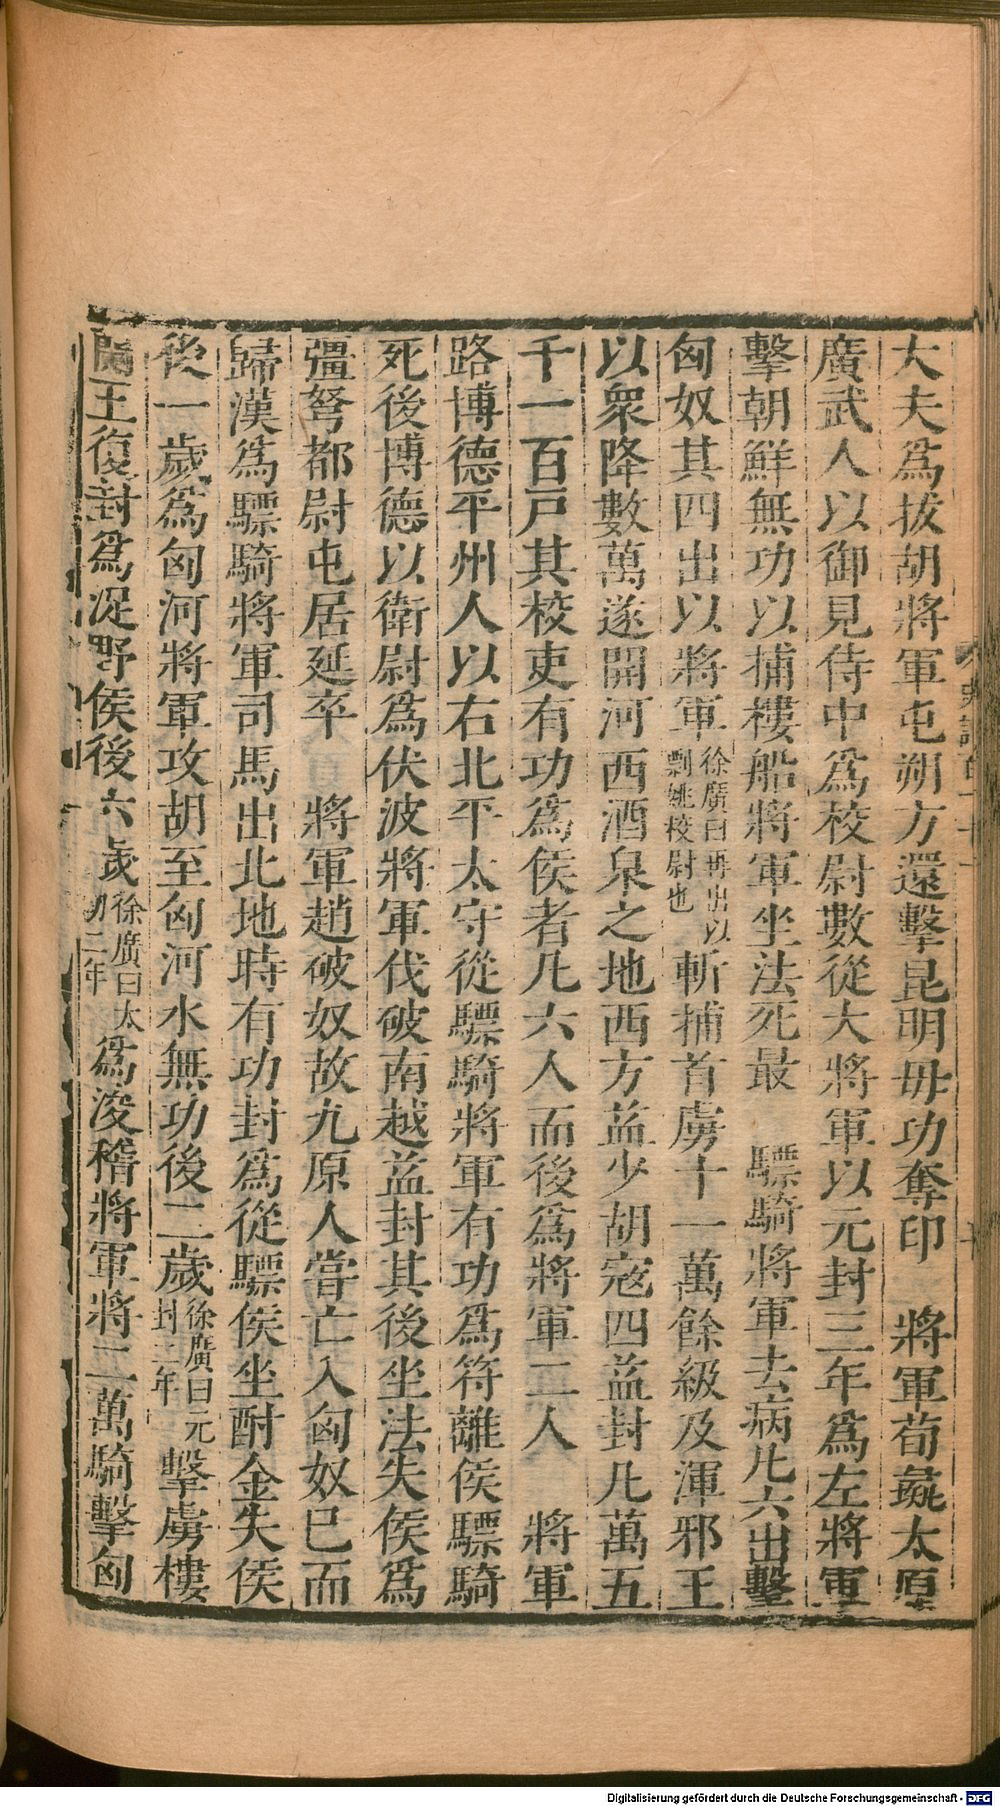 大夫爲拔胡將軍屯朔方還擊昆明毋功奪印　將軍荀彘太原
廣武人以御見侍中爲校尉數從大將軍以元封三年爲左將軍
擊朝鮮無功以捕樓船將軍坐法死最　驃騎將軍去病凡六出擊
匈奴其四出以將軍徐廣曰再出以剽姚校尉也斬捕首虜十一萬餘級及渾邪王
以衆降數萬遂開河西酒泉之地西方益少胡寇四益封凡萬五
千一百戸其校吏有功爲侯者凡六人而後爲將軍二人　將軍
路博德平州人以右北平太守從驃騎將軍有功爲符離侯驃騎
死後博德以衛尉爲伏波將軍伐破南越益封其後坐法失侯爲
彊弩都尉屯居延卒　將軍趙破奴故九原人嘗亡入匈奴已而
歸漢爲驃騎將軍司馬出北地時有功封爲從驃侯坐酎金失侯
後一歲爲匈河將軍攻胡至匈河水無功後二歲徐廣曰元封二年擊虜樓
蘭王復封爲浞野侯後六歲徐廣曰太初二年爲浚稽將軍將二萬騎擊匈
Digitalisierung gefördert durch die Deutsche Forschungsgemeinschaft - DFG